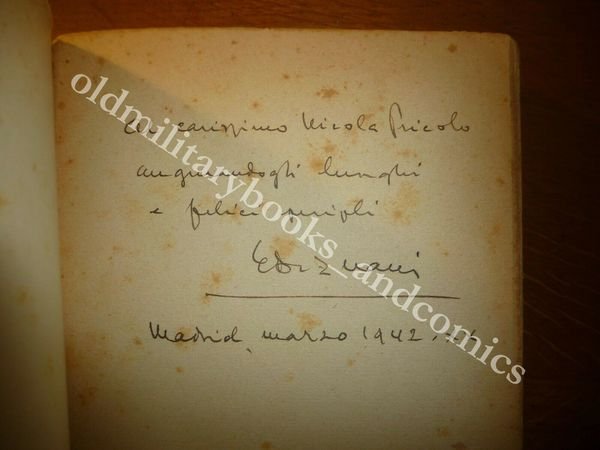 Al carissimo Nicola Pricolo
augurandogli lunghi
e felici peripli
Madrid, marzo 1942
oldmilitarybooks_andcomics